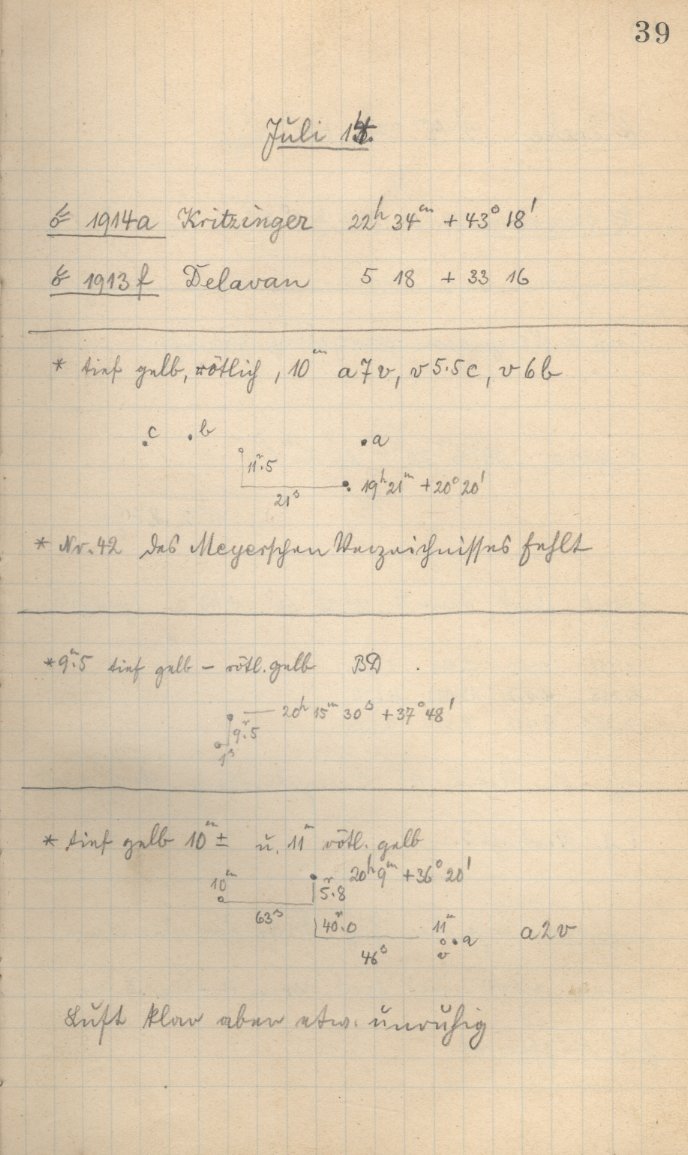 39
Juli 14.
☄ 1914a Kritzinger 22ʰ 34ᵐ + 43° 18'
☄ 1913f Delavan 5 18 + 33 16
* tief gelb, rötlich, 10ᵐ a7v, v5.5c, v6b
c b a
11ʳ.5
21ˢ 19ʰ21ᵐ +20°20'
* Nr. 42 des Meyerschen Verzeichnisses fehlt
* 9ᵐ.5 tief gelb – rötl. gelb BD
20ʰ 15ᵐ 30ˢ +37°48'
9ʳ.5
1ˢ
* tief gelb 10ᵐ± u. 11ᵐ rötl. gelb
10ᵐ 20ʰ9ᵐ +36°20'
5ʳ.8
63ˢ
40ʳ.0 11ᵐ a a2v
46ˢ v
Luft klar aber etw. unruhig